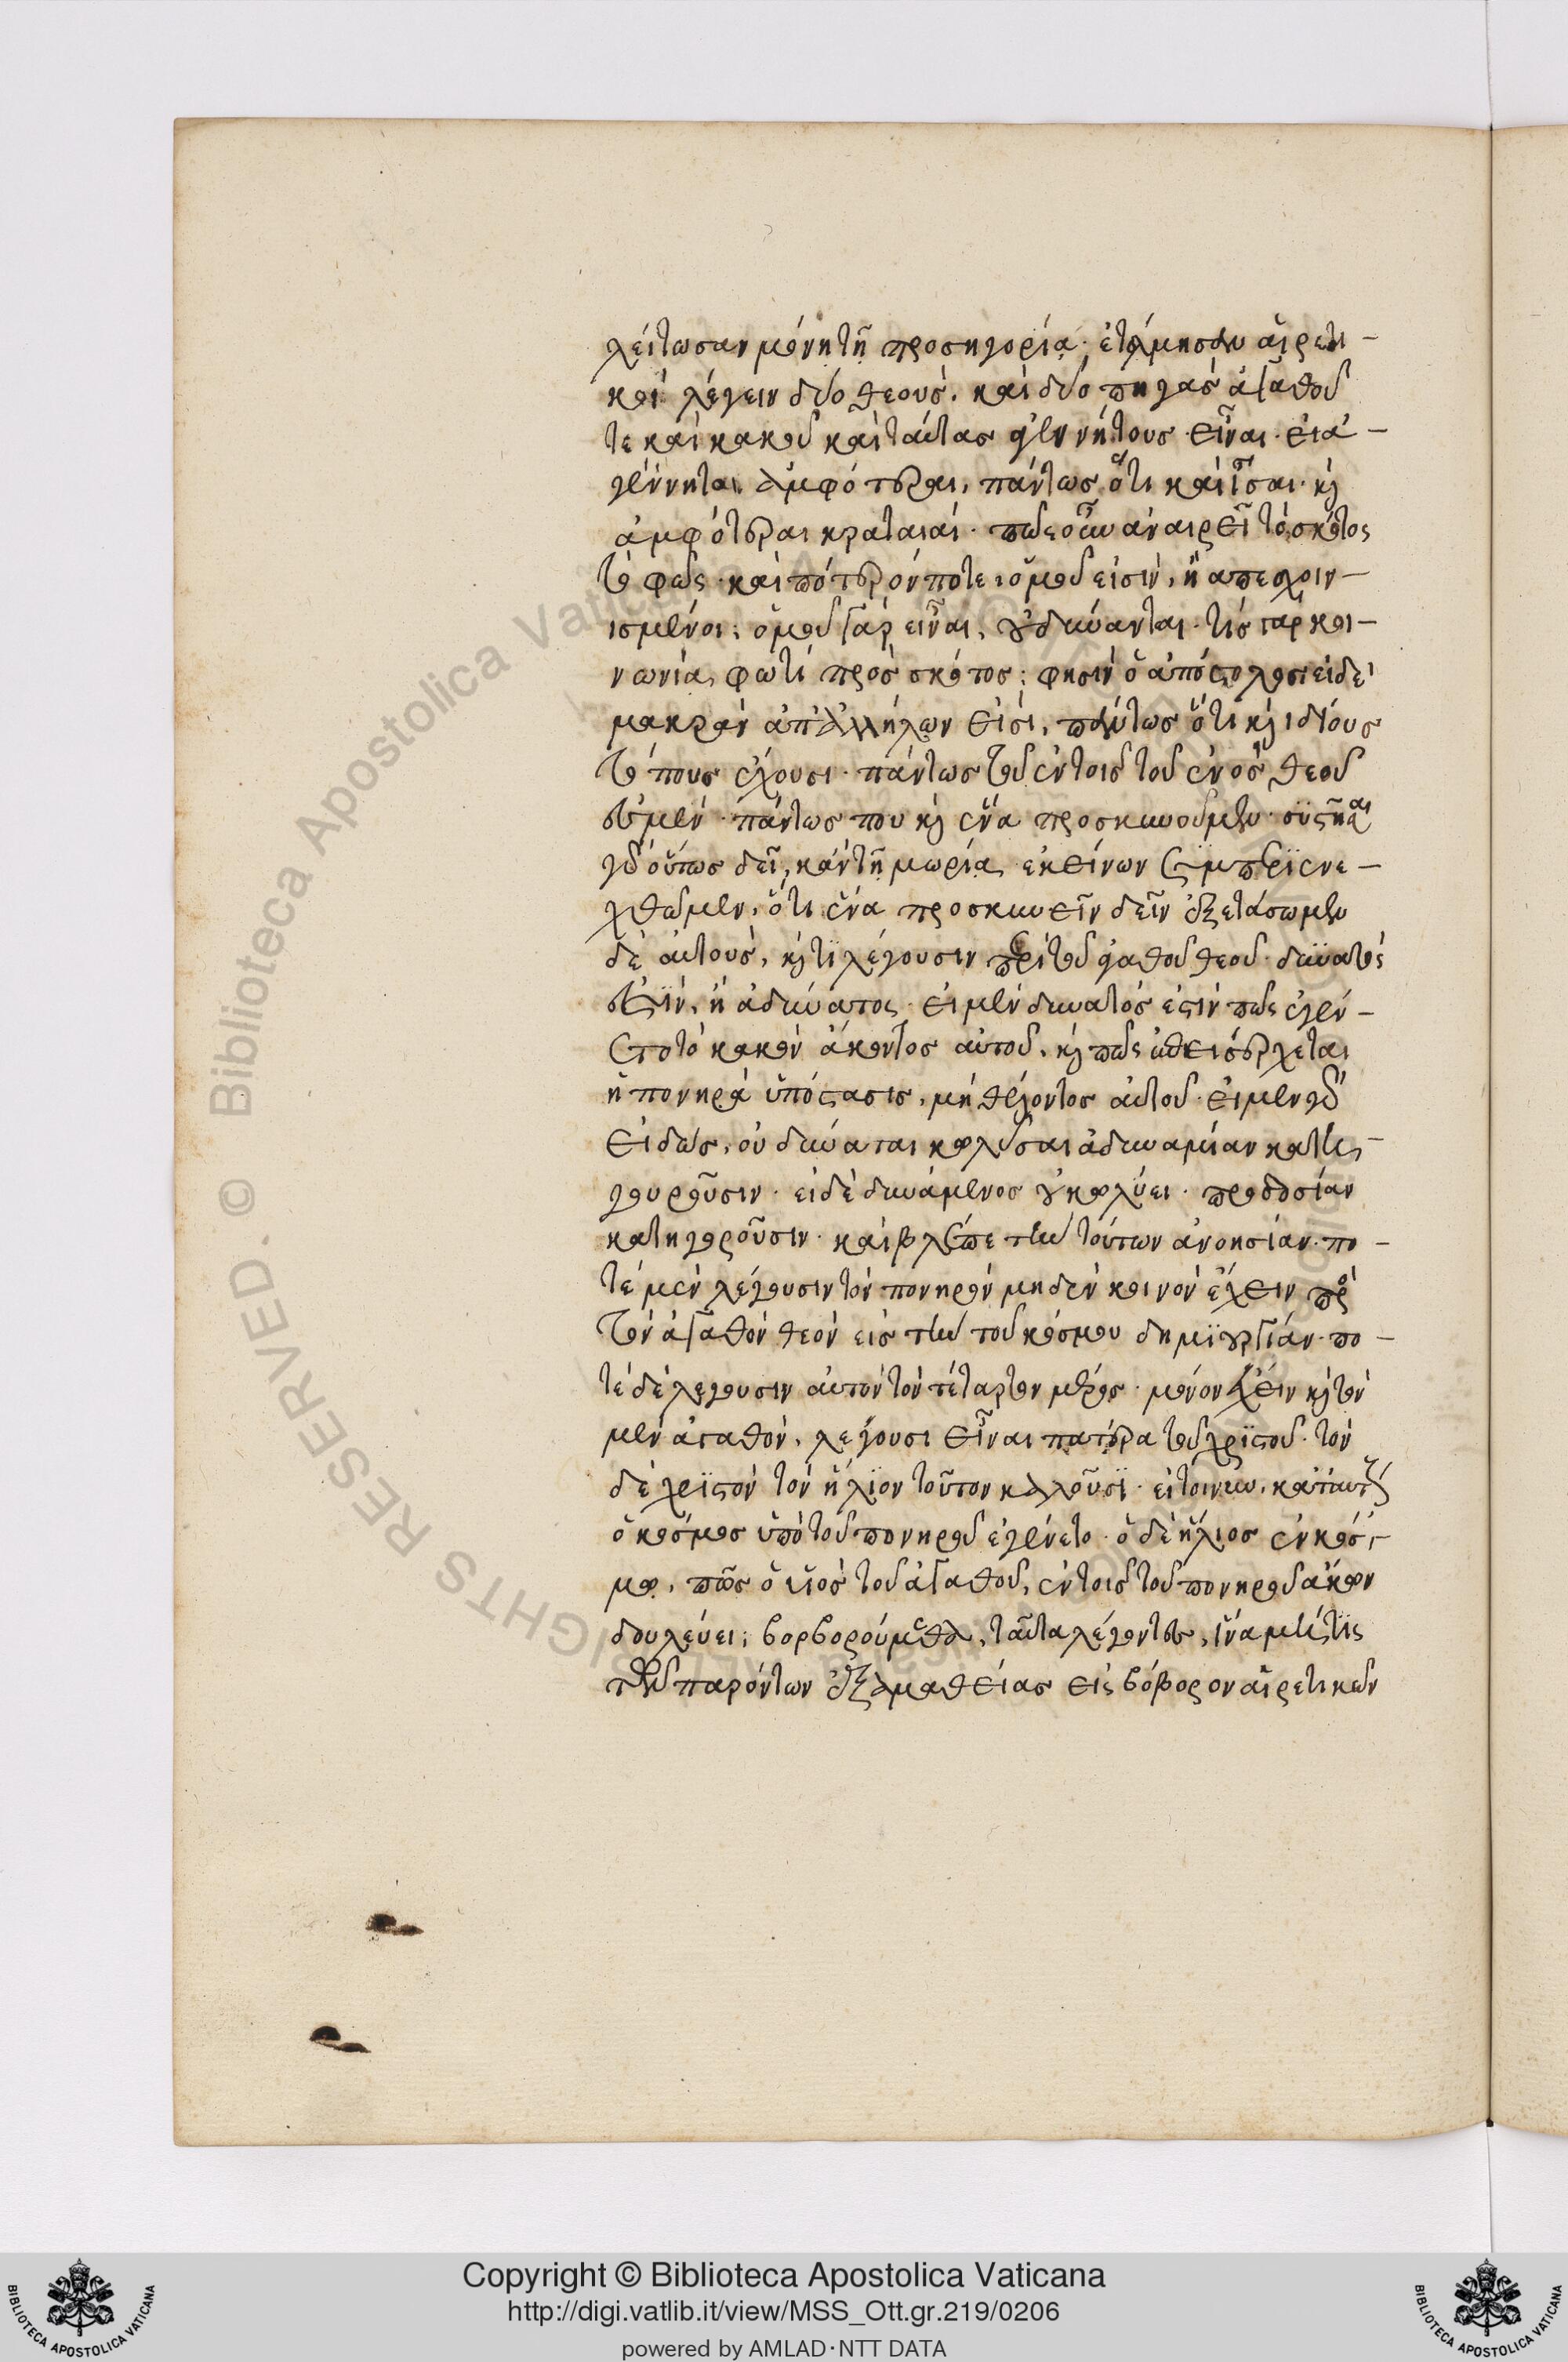 λείτωσαν μόνη τῆ προσηγορία· ἐτόλμησαν αἱρετι-
κοὶ λέγειν δύο θεοὺς. καὶ δύο πηγὰς ἀγαθοῦ
τε καὶ κακοῦ καὶ ταύτας ἀγεννήτους εἶναι· εἰ ἀ-
γέννηται ἀμφότεραι, πάντως ὅτι καὶ ἶσαι· κỳ
ἀμφότεραι κραταιαί· πῶς οὖν ἀναιρεῖ τὸ σκότος
τὸ φῶς· καὶ πότερόν ποτε, ὁμοῦ εἰσὶν, ἢ
ισμένοι; ὁμοῦ γὰρ εἶναι, οὐ δύνανται· τίς γὰρ κοι-
νωνία, φωτὶ πρὸς σκότος; φησὶν ὁ ἀπόστολος· εἰ δὲ
μακρὰν ἀπ' ἀλλήλων εἰσὶ, πάντως ὅτι καὶ ἰδίους
τόπους ἔχουσι· πάντως τοῦ ἐν τοῖς τοῦ ἑνὸς θεοῦ
ἐσμὲν· πάντως που καὶ ἕνα προσκυνοῦμεν·
γὰρ οὕτως δεῖ, κἂν τῆ μωρία ἐκείνων συμπεριενε-
χθῶμεν, ὅτι ἕνα προσκυνεῖν δεῖν ἐξετάσωμεν
δὲ αὐτοὺς, καὶ τί λέγουσιν περὶ τοῦ ἀγαθοῦ θεοῦ· δυνατός
ἐστιν, ἢ ἀδύνατος· εἰ μὲν δυνατός ἐστιν πῶς ἐγέν-
ετο τὸ κακὸν ἄκοντος αὐτοῦ, καὶ πῶς εἰσέρχεται
ἡ πονηρὰ ὑπόστασις, μὴ θέλοντος αὐτοῦ· εἰ μὲν γὰρ
εἰδὼς, οὐ δύναται κωλῦσαι ἀδυναμίαν κατη-
γουροῦσιν· εἰ δὲ δυνάμενος οὐ κωλύει· προδοσίαν
κατηγοροῦσιν· καὶ βλέπε τὴν τούτων ἀνοησίαν· πο-
τέ μὲν λέγουσιν τὸν πονηρὸν μηδὲν κοινὸν ἔχειν πρὸς
τὸν ἀγαθὸν θεὸν εἰς τὴν τοῦ κόσμου δημιουργίαν· πο-
τέ δὲ λέγουσιν αὐτὸν τὸν τέταρτον μέρος· μόνον ἔχειν καὶ τὸν
μὲν ἀγαθὸν, λέγουσι εἶναι πατέρα τοῦ χριστοῦ· τὸν
δὲ χριστὸν τὸν ἥλιον τοῦτον καλοῦσι· εἰ τοίνυν, κατ'αυτοὺς
ὁ κόσμος ὑπὸ τοῦ πονηροῦ ἐγένετο· ὁ δὲ ἥλιος ἐν κόσ-
μω, πῶς ὁ υἱὸς τοῦ ἀγαθοῦ, ἐν τοῖς τοῦ πονηροῦ ἄκων
δουλεύει; βορβορούμεθα, ταῦτα λέγοντες, ἵνα μή τις
τῶν παρόντων ἐξ ἀμαθείας εἰς βόρβορον αἱρετικῶν
Copyright © Biblioteca Apostolica Vaticana
http://digi.vatlib.it/view/MSS_Ott.gr.219/0206
powered by AMLAD·NTT DATA